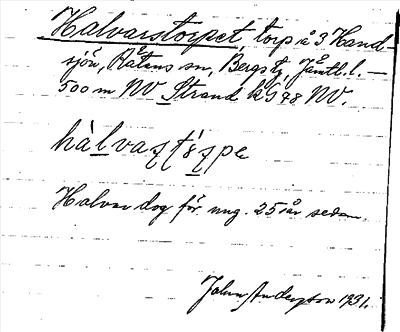 Halvarstorpet, torp å 3 Hand-
sjön, Råtens sn, Bergs tg, Jämtl. l. —
500 m NV Strand k G 78 NV.
hàlvaʂtɵ́ʂpe
Halvar dog för ung. 25 år sedan.
John Anderzon 1931.